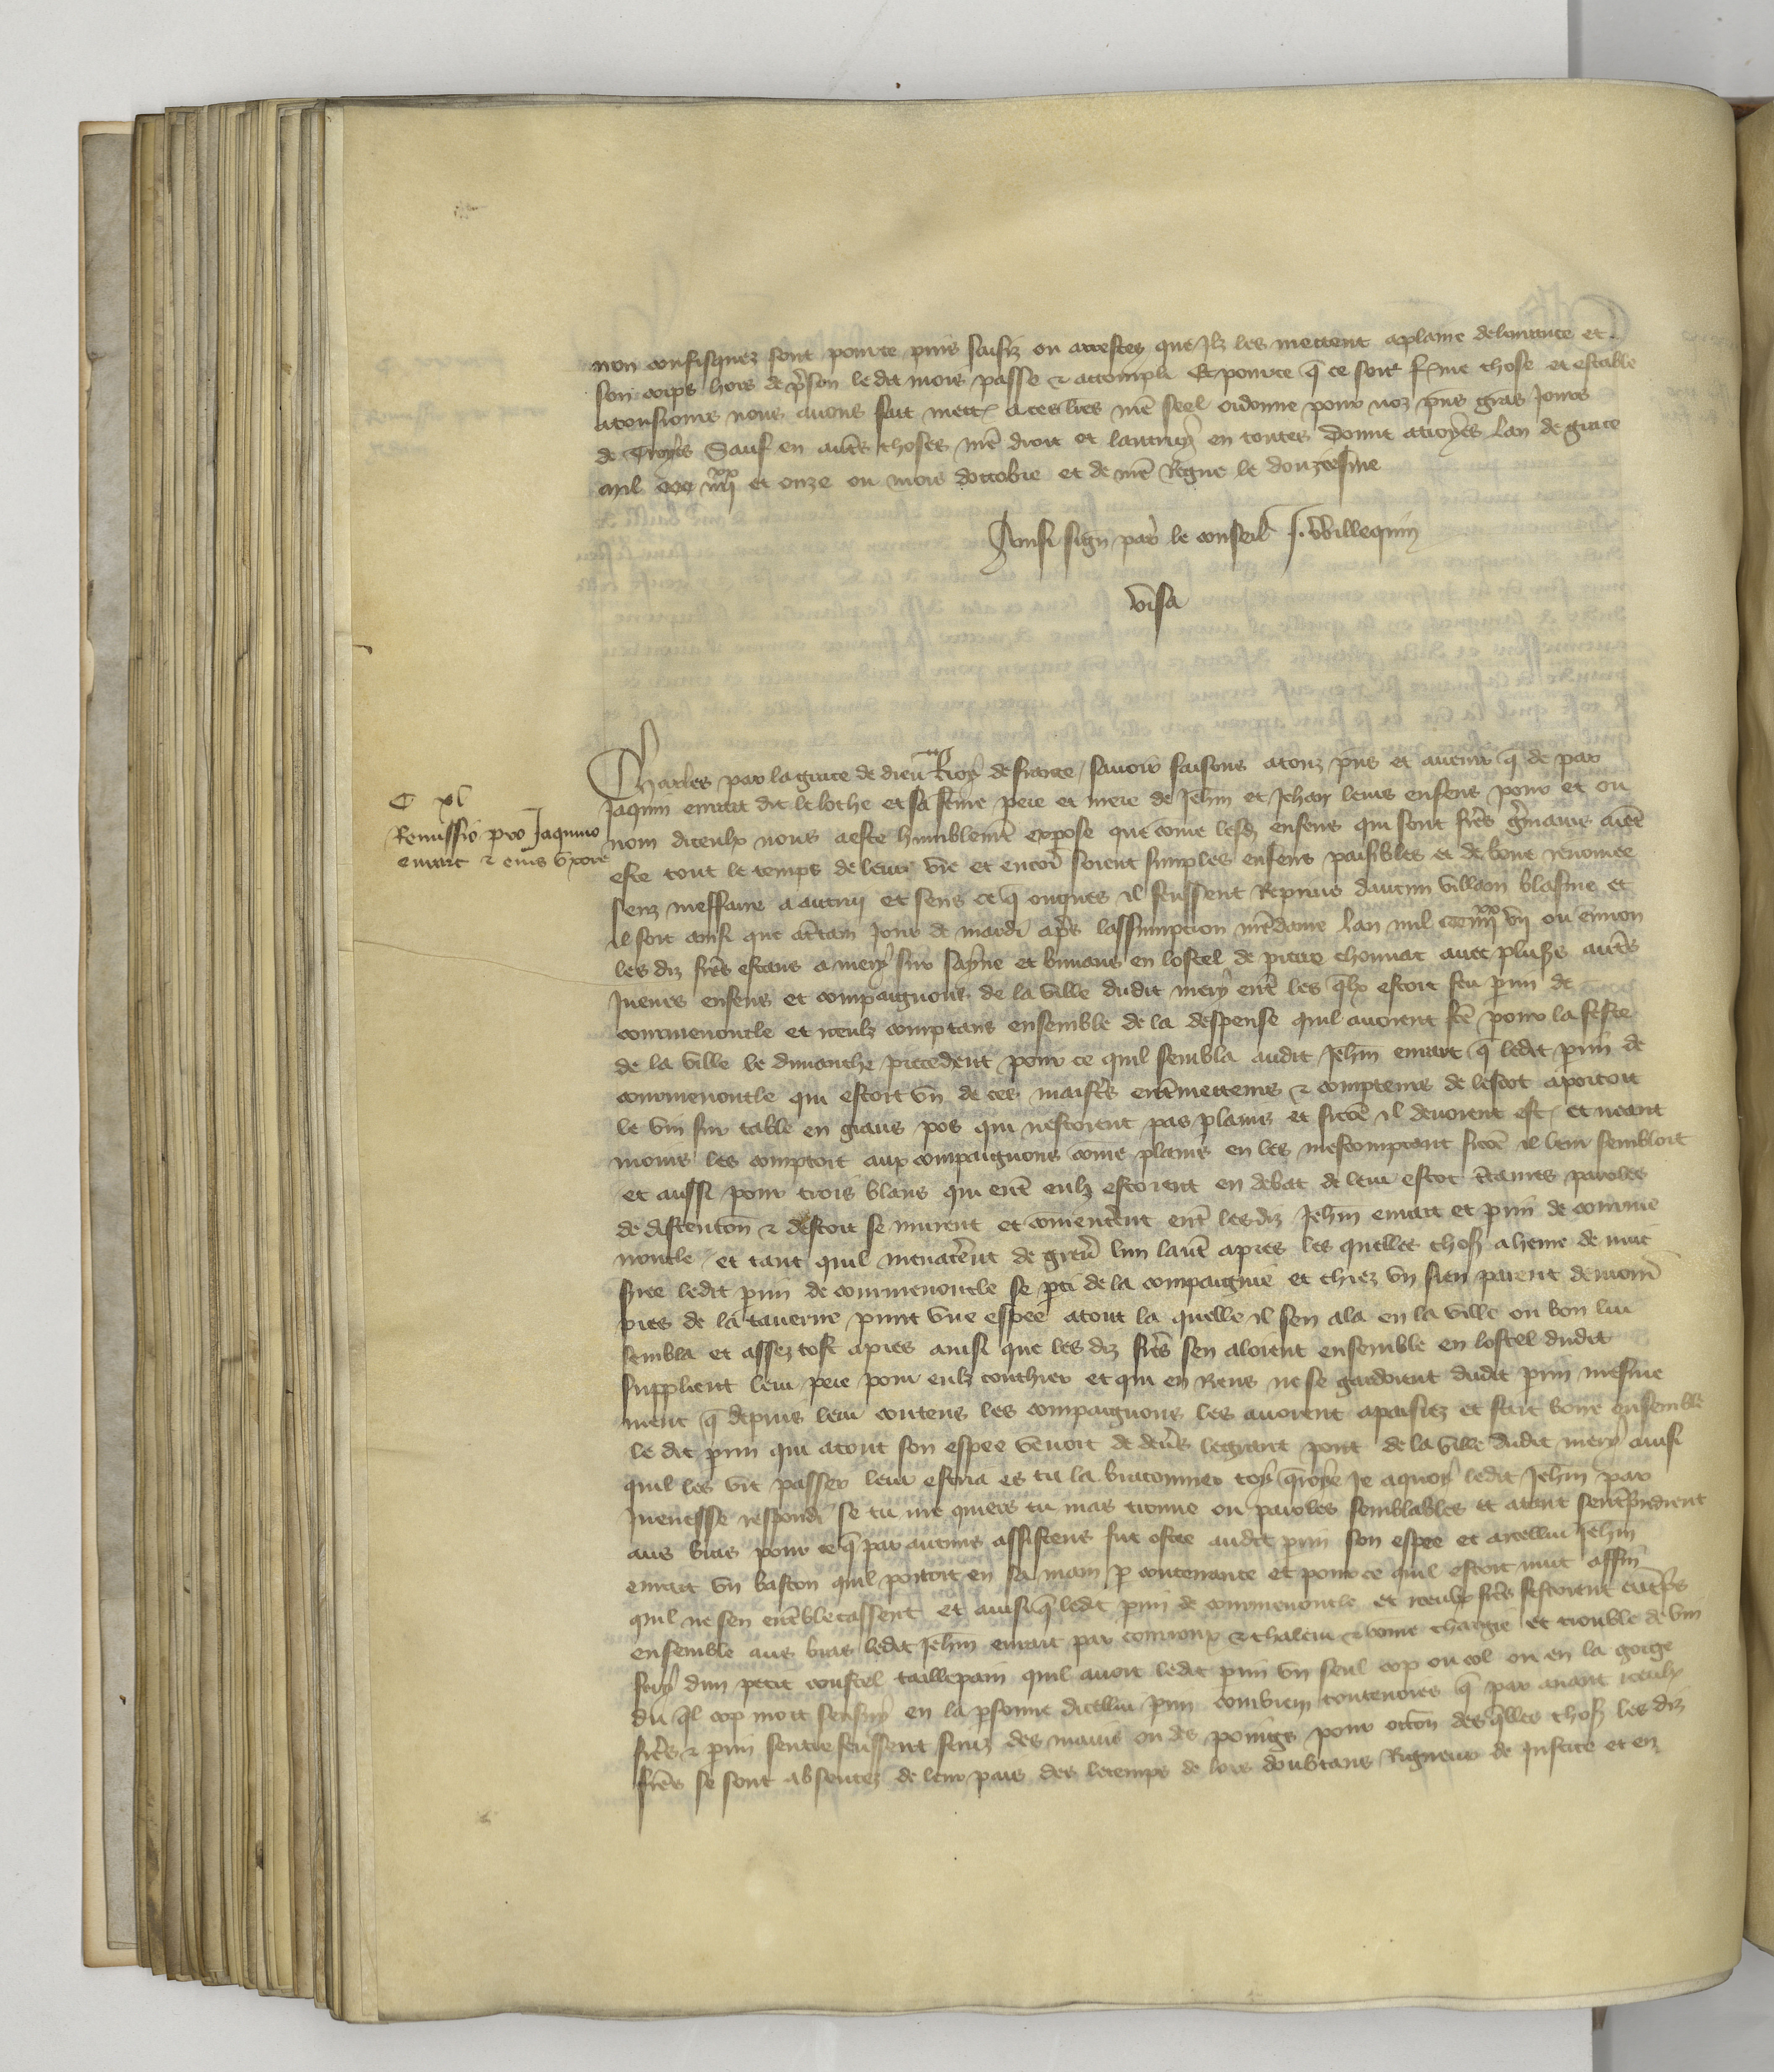 non confisquez sont pource prins saisiz ou arrestez que Ilz les mettent a plaine deliurance et
son corps hors de prison ledit mois passe & accompli Et pource q̄ ce soit ferme chose et estable
a tousiours nous auons fait mettre a ces lres nr̄e seel ordonne pour noz pn̄s grās Jours
de Troyes Sauf en autres choses nr̄e droit et lautruy en toutes Donne a troyes Lan de grace
mil ccc iiii xx et onze ou mois doctobre et de nr̄e Regne le douziesme
Ainsi sign par le conseil J. Willequin
visa
Charles par la grace de dieu Roy de france / sauoir faisons a touz pn̄s et auenir q̄ de par
C xl
Remissio pro Jaquino
emart & eius vxore
Jaquin emart dit le loche et sa feme pere et mere de Jehan et Jehan leurs enfens pour et ou
nom diceulx nous a este humblemt expose que come lesd enfens qui sont freres germains aient
este tout le temps de leur vie et encor soient simples enfens paisibles et de bone renomee
senz meffaire a autruy et sens ce q̄ onques il feussent Reprins daucun villain blasme et
il soit ainsi que certain Jour de mardi apres lassumption nr̄e dame Lan mil ccc iiii xx vii ou enuiron
les diz freres estans a mery sur sayne et buuans en lostel de pierre chonnat auec plusrs autres
Jueunes enfens et compaignons de la ville dudit mery entre les quelx estoit feu perrin de
commenoncle et iceulz comptans ensemble de la despense quil auoient fcē pour la feste
de la ville le dimanche precedent pour ce quil sembla audit Jehan emart q̄ ledit perrin de
commenoncle qui estoit vn de ces maistres entremetteurs & compteurs de lescot aportoit
le vin sur table en grans pos qui nestoient pas plains et sicōe il deuoient estre et neant
moins les comptoit aux compaignons come plains en les mescomptant sicōe il leur sembloit
et aussi pour trois blans qui entre eulz estoient en debat de leur escot certaines paroles
de discention & descort se murent et comencerent entre lesdiz Jehan emart et perrin de comme
noncle / et tant quil menacerent de greuer lun lautre apres les quelles choses a heure de nuit
ledit perrin de commenoncle se parti de la compaignie et chiez vn sien parent demourant
pres de la tauerne print vne espee a tout la quelle il sen ala en la ville ou bon lui
sembla et assez tost apres ainsi que les diz freres sen aloient ensemble en lostel dudit
suppliant leur pere pour eulz couchier et qui en Riens ne se gardoient dudit perrin mesme
ment q̄ depuis leur contens les compaignons les auoient apaisiez et fait boire ensemble
le dit perrin qui a tout son espee venoit de deuers le grant pont de la ville dudit mery ainsi
quil les vit passer leur escria es tu la braconnier toy q̄roye Je aquoy ledit Jehan par
Jueunesse respondi se tu me quiers tu mas trouue ou paroles semblables et atant sentreprindrent
aus bras pour ce q̄ par aucuns assistens fut ostee audit perrin son espee et a icellui Jehan
emart vn baston quil portoit en sa main p contenance et pour ce quil estoit nuit affin
quil ne sen entreblecassent et ainsi q̄ ledit perrin de commenoncle et iceulx freres sestoient entrepris
ensemble aus bras ledit Jehan emart par courroux & chaleur & come chargie et trouble de vin
feri dun petit coustel taillepain quil auoit ledit perrin vn seul cop ou col ou en la gorge
du q̄l cop mort sensuy en la persone dicellui perrin combien toutevoies q̄ par auant iceulx
freres & perrin sentre feussent feruz des mains ou des poings pour occōn des q̄lles choses les diz
freres se sont absentez de leur pais des le temps de lors doubtans Rigueur de Justice et en